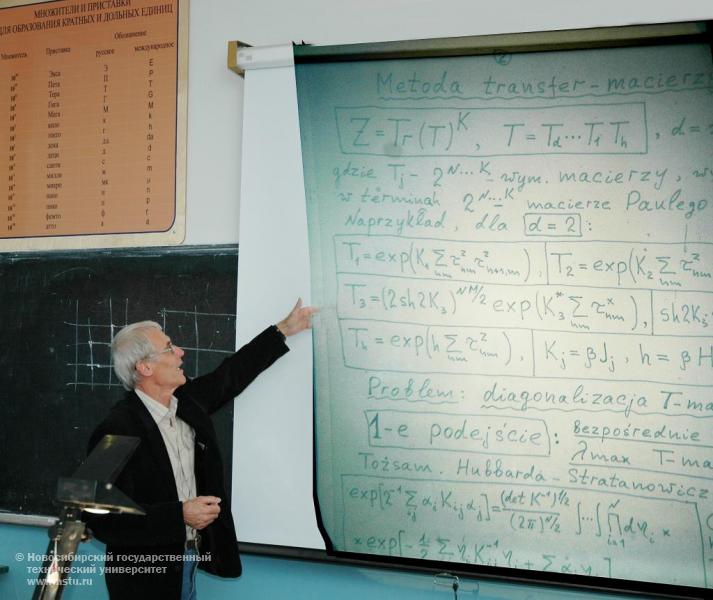 МНОЖИТЕЛИ И ПРИСТАВКИ
ДЛЯ ОБРАЗОВАНИЯ КРАТНЫХ И ДОЛЬНЫХ ЕДИНИЦ
Множитель Приставка Обозначение
русское международное
Экса Э E
Пета П P
Тера Т T
Гига Г G
Мега М M
кило к k
гекто г h
дека да da
деци д d
санти с c
милли м m
микро мк μ
нано н n
пико п p
фемто ф f
атто а a
Metoda transfer-macierzy
Z = Tr(T)^K, T = T_d...T_1 T_h, d =
gdzie T_j - 2^{N...K} wym. macierzy,
w terminah 2^{N...K} macierze Paulego
Naprzykład, dla d = 2:
T_1 = exp(K_1 Σ_{nm} τ^z_{nm} τ^z_{n+1,m}), T_2 = exp(K_2 Σ_{nm} τ^z_{nm}
T_3 = (2sh2K_3)^{NM/2} exp(K_3^* Σ_{nm} τ^x_{nm}), sh2K_j
T_h = exp(h Σ_{nm} τ^z_{nm}), K_j = βJ_j, h = βH
Problem: diagonalizacja T-ma
1-e podejście: Bezpośrednie
λ_max T-ma
Tożsam. Hubbarda-Stratanowicz
exp[2^{-1} Σ_{ij} α_i K_{ij} α_j] = (det K^{-1})^{1/2} / (2π)^{N/2} ∫...∫ Π_{i=1}^N dη_i ×
× exp[-1/2 Σ η_i K^{-1}_{ij} η_j + Σ α_i η_i]
© Новосибирский государственный
технический университет
www.nstu.ru